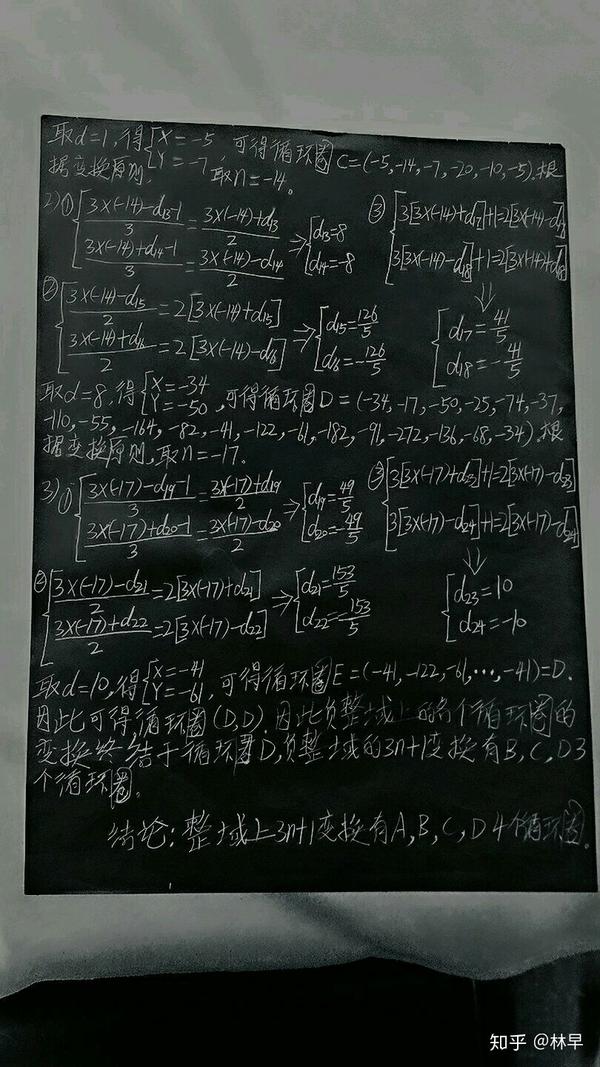 取d=1,得{X=-5 Y=-7,可得循环圈C=(-5,-14,-7,-20,-10,-5).根
据变换原则,取n=-14。
2)①{(3×(-14)-d13-1)/3=(3×(-14)+d13)/2
(3×(-14)+d14-1)/3=(3×(-14)-d14)/2 ⇒{d13=8 d14=-8
③{3[3×(-14)+d17]+1=2[3×(-14)-d17]
3[3×(-14)-d18]+1=2[3×(-14)+d18]
⇓
{d17=41/5 d18=-41/5
②{(3×(-14)-d15)/2=2[3×(-14)+d15]
(3×(-14)+d16)/2=2[3×(-14)-d16] ⇒{d15=126/5 d16=-126/5
取d=8,得{X=-34 Y=-50,可得循环圈D=(-34,-17,-50,-25,-74,-37,
-110,-55,-164,-82,-41,-122,-61,-182,-91,-272,-136,-68,-34).根
据变换原则,取n=-17。
3)①{(3×(-17)-d19-1)/3=(3×(-17)+d19)/2
(3×(-17)+d20-1)/3=(3×(-17)-d20)/2 ⇒{d19=49/5 d20=-49/5
③{3[3×(-17)+d23]+1=2[3×(-17)-d23]
3[3×(-17)-d24]+1=2[3×(-17)+d24]
⇓
{d23=10 d24=-10
②{(3×(-17)-d21)/2=2[3×(-17)+d21]
(3×(-17)+d22)/2=2[3×(-17)-d22] ⇒{d21=153/5 d22=-153/5
取d=10,得{X=-41 Y=-61,可得循环圈E=(-41,-122,-61,⋯,-41)=D.
因此可得循环圈(D,D).因此负整域上的各个循环圈的
变换终结于循环圈D,负整域的3n+1变换有B,C,D3
个循环圈。
结论:整域上3n+1变换有A,B,C,D4个循环圈.
知乎 @林早